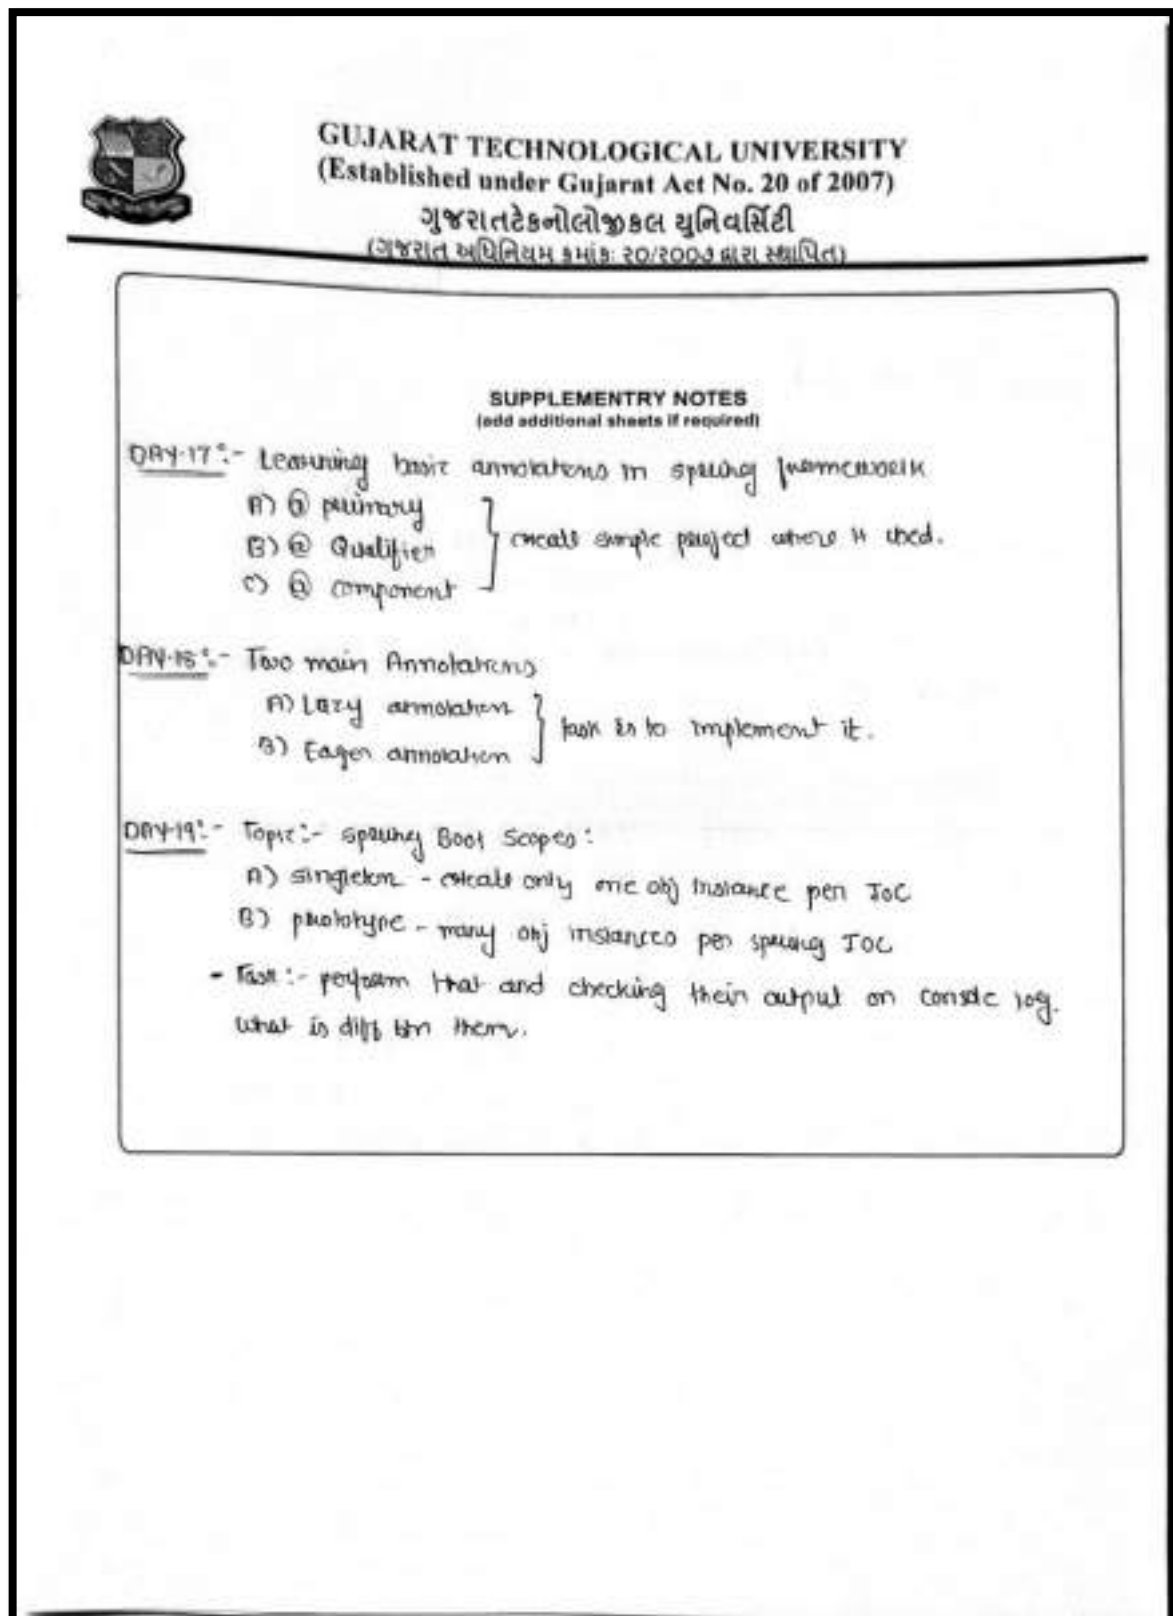 GUJARAT TECHNOLOGICAL UNIVERSITY
(Established under Gujarat Act No. 20 of 2007)
ગુજરાતટેકનોલોજીકલ યુનિવર્સિટી
(ગુજરાત અધિનિયમ ક્રમાંક: ૨૦/૨૦૦૭ દ્વારા સ્થાપિત)
SUPPLEMENTRY NOTES
(add additional sheets if required)
DAY-17:- Learning basic annotations in spring framework
A) @ primary
B) @ Qualifier
C) @ component
create simple project where it used.
DAY-18:- Two main Annotations
A) Lazy annotation
B) Eager annotation
task is to implement it.
DAY-19:- Topic:- spring Boot Scopes:
A) singleton - create only one obj instance per IOC
B) prototype - many obj instances per spring IOC
- Task:- perform that and checking their output on console log.
what is diff btn them.